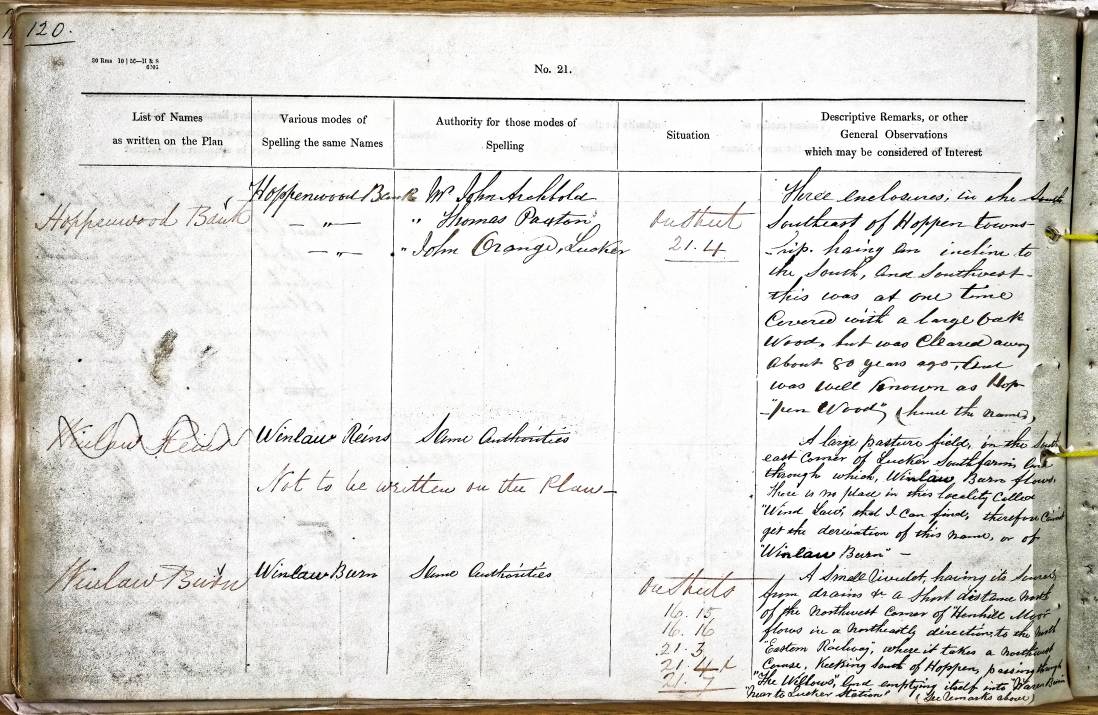 120.
20 Rms 10 | 56—H & S
No. 21.
List of Names
as written on the Plan
Various modes of
Spelling the same Names
Authority for those modes of
Spelling
Situation
Descriptive Remarks, or other
General Observations
which may be considered of Interest
Hoppenwood Bank
Hoppenwood Bank
— „ —
— „ —
Mr John Archbold
„ Thomas Paxton
„ John Orange, Lucker
on sheet
21.4
Three enclosures, in the South
Southeast of Hoppen towns-
-hip. having an incline to
the South, and Southwest-
this was at one time
Covered with a large oak
Wood, but was Cleared away
about 80 years ago, but
was well known as Hop-
-"pen Wood", (hence the name,
Winlaw Reins
Winlaw Reins
Same Authorities
Not to be written on the Plan—
A large pasture field, in the South
east Corner of Lucker Southfarm, and
through which, Winlaw Burn flows.
There is no place in this locality Called
"Wind Law", that I can find, therefore Cannot
get the derivation of this name, or of
"Winlaw Burn" —
Winlaw Burn
Winlaw Burn
Same Authorities
on Sheets
16. 15
16. 16
21. 3
21. 4 &
21. 7
A Small rivulet, having its Source
from drains & a Short distance North
of the Northwest Corner of "Henhill Moor
flows in a Northeastly direction, to the North
"Eastern Railway", where it takes a Northwest
Course, Keeping South of Hoppen, passing through
"The Willows", and emptying itself into "Waren Burn
"Near to Lucker Station" (See remarks above)